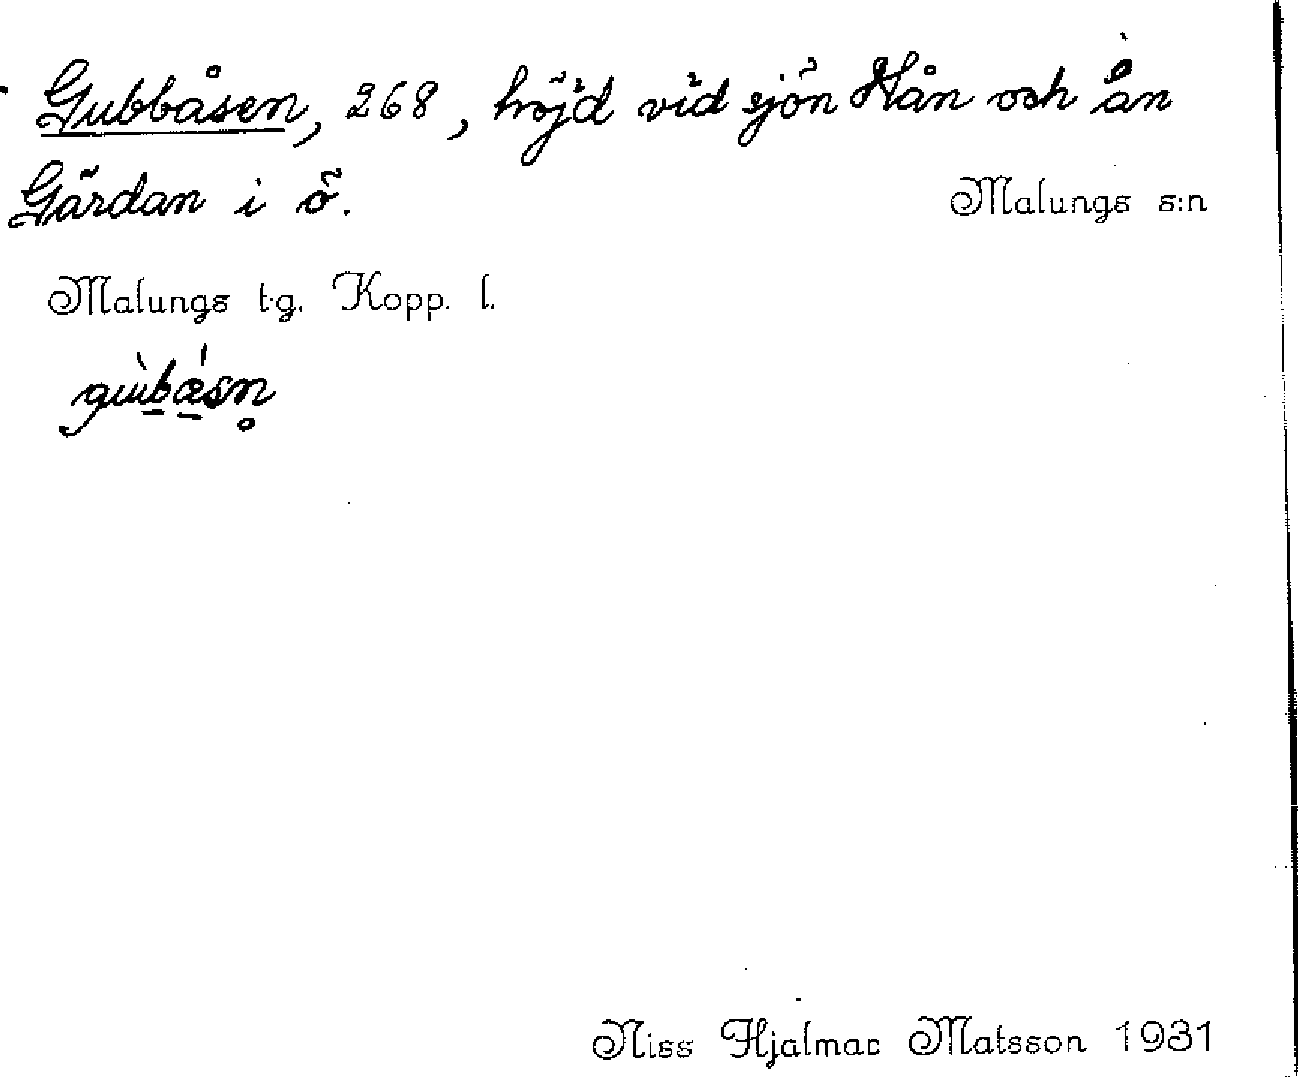 Gubbåsen, 268, höjd vid sjön Hån och ån
Gärdan i ö.
Malungs s:n
Malungs t.g. Kopp. l.
Niss Hjalmar Matsson 1931